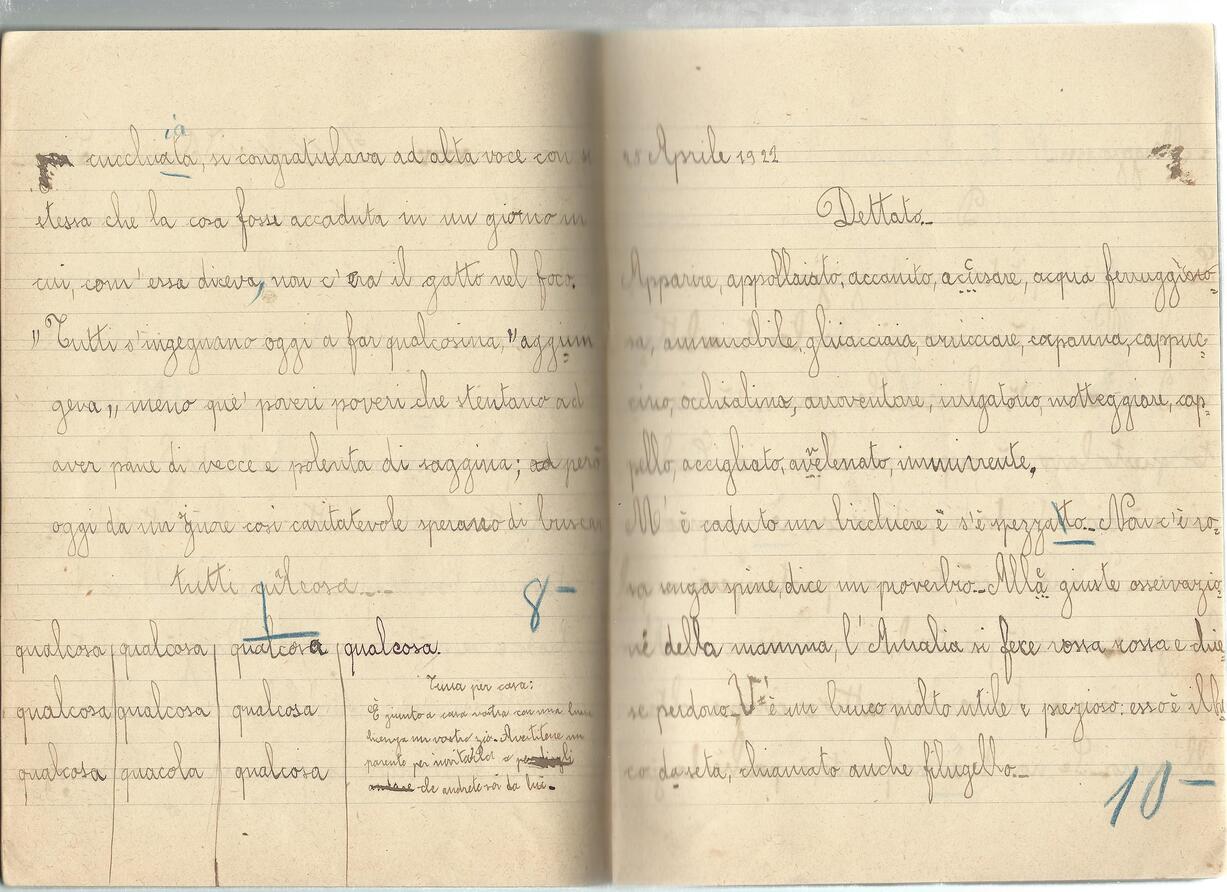 cucchiata, si congratulava ad alta voce con
stessa che la cosa fosse accaduta in un giorno in
cui, com'essa diceva, non c'era il gatto nel foco.
"Tutti s'ingegnano oggi a far qualcosina," aggiun=
geva,, meno que' poveri poveri che stentano ad
aver pane di vecce e polenta di saggina; però
oggi da un signore così caritatevole sperano di buscar
tutti qualcosa
8-
qualcosa qualcosa qualcosa qualcosa.
Tema per casa:
qualcosa qualcosa qualcosa
È giunto a casa vostra con una
licenza un vostro zio. Avvertitene un
parente per invitarlo e
qualcosa quacola qualcosa
che andrete voi da lui.
Aprile 1922
Dettato.
Apparire, appollaiato, accanito, accusare, acqua ferruggino=
sa, ghiacciaia, arricciare, capanna, cappuc=
cino, occhialino, arroventare, irrigatorio, motteggiare, cap=
pello, accigliato, avvelenato,
M'è caduto un bicchiere e s'è spezzato. Non c'è ro=
sa senza spine, dice un proverbio. Alle giuste osservazio=
ni della mamma, l'Amalia si fece rossa rossa e chie=
se perdono. V'è un bruco molto utile e prezioso: esso è il ba=
co da seta, chiamato anche filugello.
10-